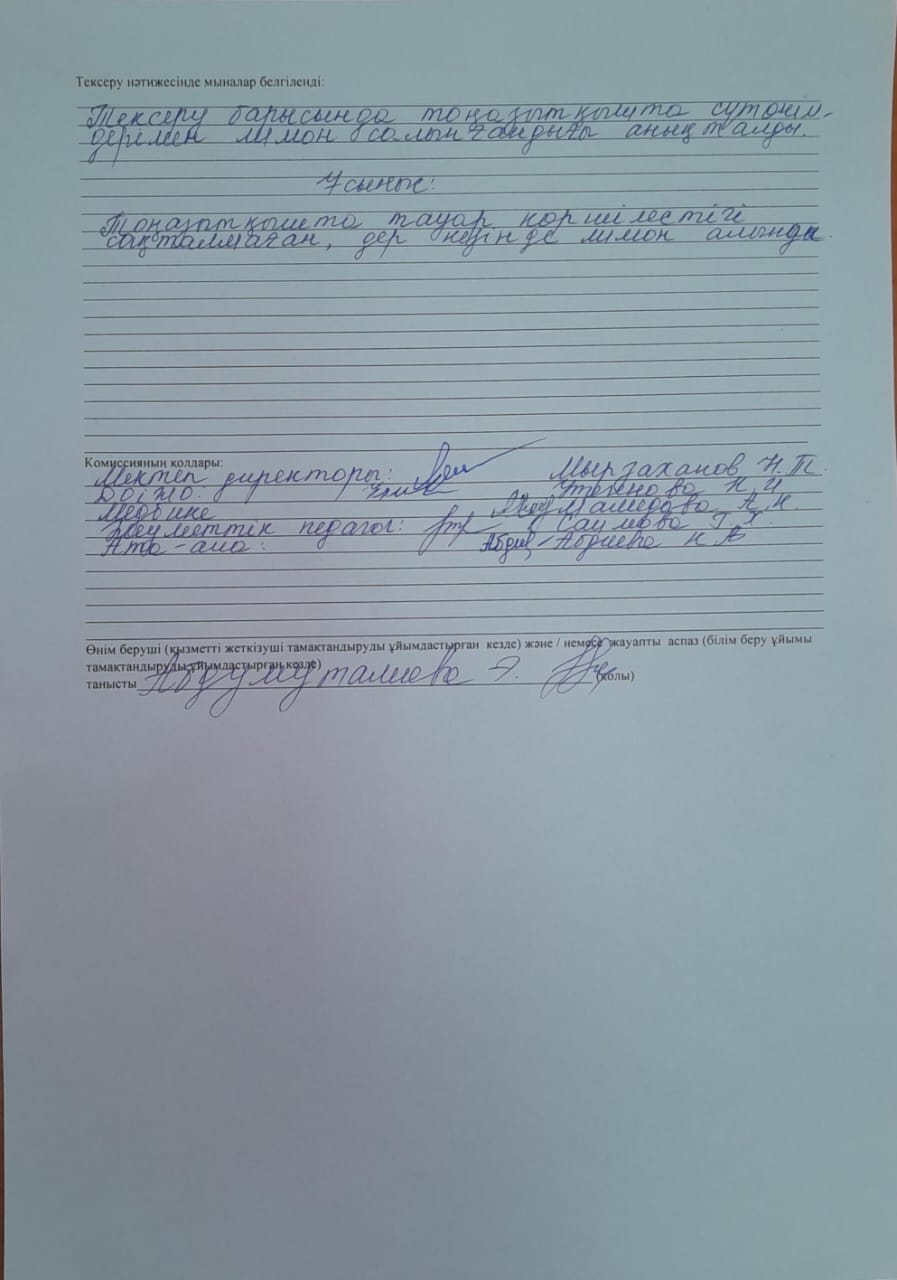 Тексеру нәтижесінде мыналар белгіленді:
Тексеру барысында тоңазытқышта сүт өнім-
дерімен лимон салынғандығы анықталды.
Ұсыныс:
Тоңазытқышта тауар көршілестігі
сақталмаған, дер кезінде лимон алынды
Комиссияның қолдары:
Мектеп директоры: Мырзаханов Н.Т.
ДОІЖО. Утегенова Н.И
Медбике Мамедова А.Н.
Әлеуметтік педагог: Саулова Г.Х.
Ата-ана: Абдиева Н А
Өнім беруші (қызметті жеткізуші тамақтандыруды ұйымдастырған кезде) және / немесе жауапты аспаз (білім беру ұйымы
тамақтандыруды ұйымдастырған кезде)
танысты Абдумуталиева Э. (қолы)